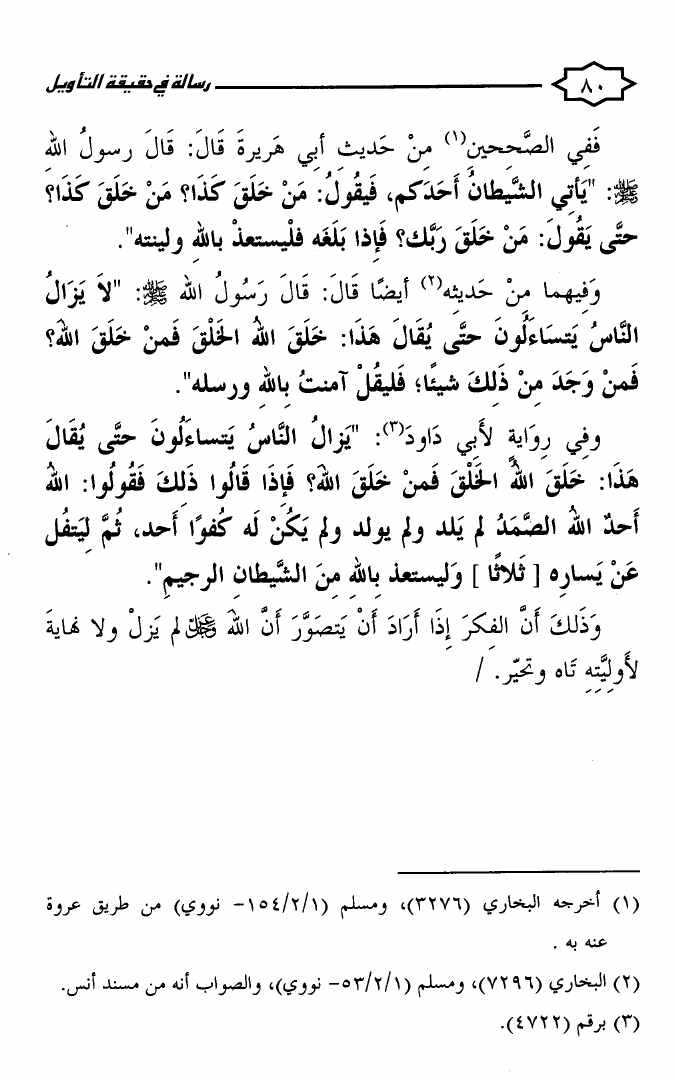 ٨٠ رسالة في حقيقة التأويل
فَفِي الصَّحِيحين(١) مِنْ حَديثِ أبِي هَريرةَ قَالَ: قَالَ رسولُ اللهِ
ﷺ: "يَأتِي الشَّيطانُ أَحَدَكم، فَيقُولُ: مَنْ خَلَقَ كَذَا؟ مَنْ خَلَقَ كَذَا؟
حتَّى يَقُولَ: مَنْ خَلَقَ رَبَّك؟ فَإِذا بَلَغَه فلْيستعذْ باللهِ ولينته".
وَفيهما مِنْ حَديثِه(٢) أيضًا قَالَ: قَالَ رَسُولُ الله ﷺ: "لاَ يَزَالُ
النَّاسُ يَتسَاءَلُونَ حتَّى يُقَالَ هَذَا: خَلَقَ اللهُ الخَلْقَ فَمنْ خَلَقَ اللهَ؟
فَمنْ وَجَدَ مِنْ ذَلِكَ شيئًا؛ فَليقُلْ آمنتُ بِاللهِ ورسله".
وفِي رِوَايةٍ لأَبي دَاودَ(٣): "يَزالُ النَّاسُ يَتساءَلُونَ حتَّى يُقَالَ
هَذَا: خَلَقَ اللهُ الخَلْقَ فَمنْ خَلَقَ اللهَ؟ فَإِذَا قَالُوا ذَلِكَ فَقُولُوا: اللهُ
أَحدٌ اللهُ الصَّمَدُ لم يَلد ولم يولد ولم يَكُنْ لَه كُفوًا أحد، ثُمَّ لِيَتفُل
عَنْ يَسارِه [ ثَلاثًا ] وَليستعذ بِاللهِ مِنَ الشَّيطانِ الرجيمِ".
وَذَلكَ أَنَّ الفِكرَ إِذَا أَرَادَ أَنْ يَتصَوَّرَ أَنَّ اللهَ ﷿ لم يَزلْ ولا نهايةَ
لأَوليَّتِهِ تَاه وتحيّر. /
(١) أخرجه البخاري (٣٢٧٦)، ومسلم (١٥٤/٢/١- نووي) من طريق عروة
عنه به .
(٢) البخاري (٧٢٩٦)، ومسلم (٥٣/٢/١- نووي)، والصواب أنه من مسند أنس.
(٣) برقم (٤٧٢٢).